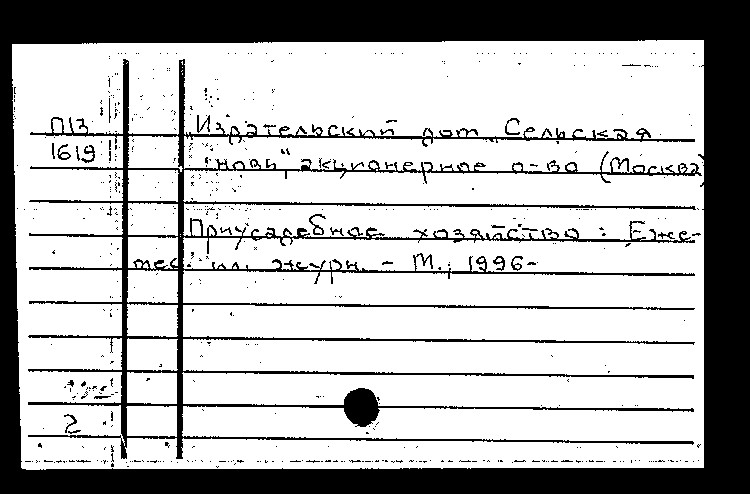 П13
1619
Издательский дом „Сельская
новь", акционерное о-во (Москва)
Приусадебное хозяйство : Еже-
мес. ил. журн. - М., 1996-
2